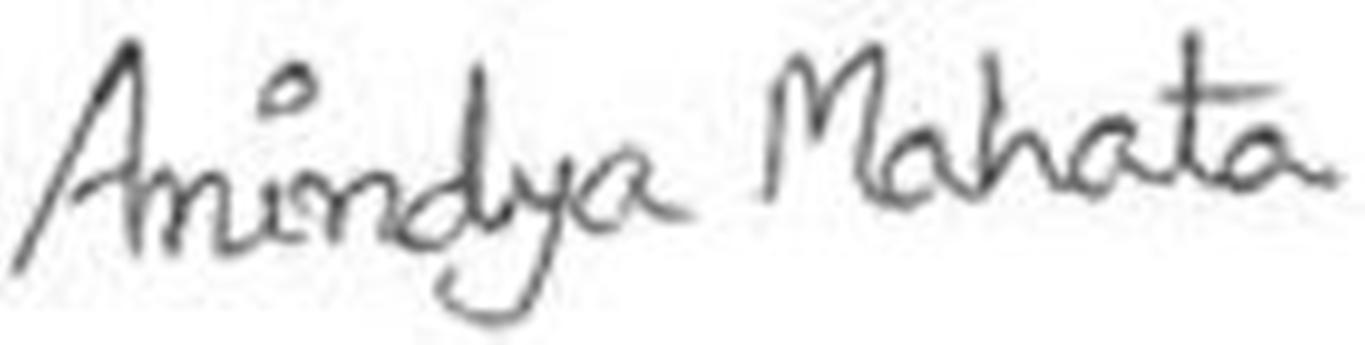 Anindya Mahata